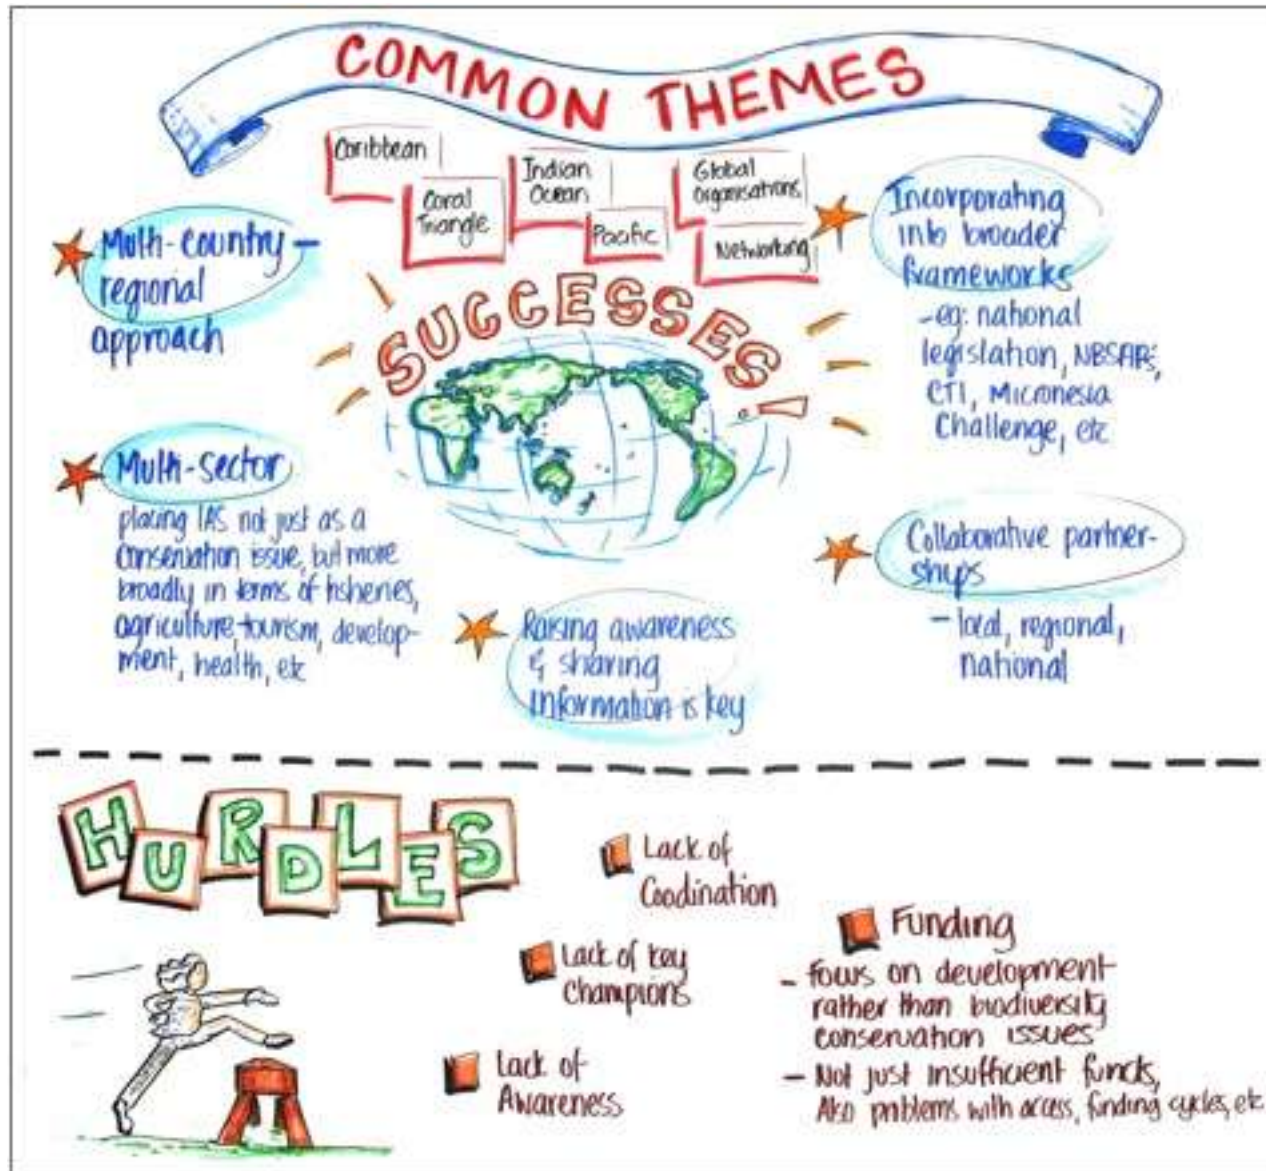 COMMON THEMES
Caribbean
Coral
Triangle
Indian
Ocean
Pacific
Global
Organisations
Networking
SUCCESSES!
Multi-country –
regional
approach
Multi-sector
placing IAS not just as a
conservation issue, but more
broadly in terms of fisheries,
agriculture, tourism, develop-
ment, health, etc
Raising awareness
& sharing
information is key
Incorporating
into broader
frameworks
-eg: national
legislation, NBSAPs,
CTI, Micronesia
Challenge, etc
Collaborative partner-
ships
– local, regional,
national
HURDLES
Lack of
Coodination
Lack of key
Champions
Lack of
Awareness
Funding
- Focus on development
rather than biodiversity
conservation issues
- Not just insufficient funds,
Also problems with access, funding cycles, etc